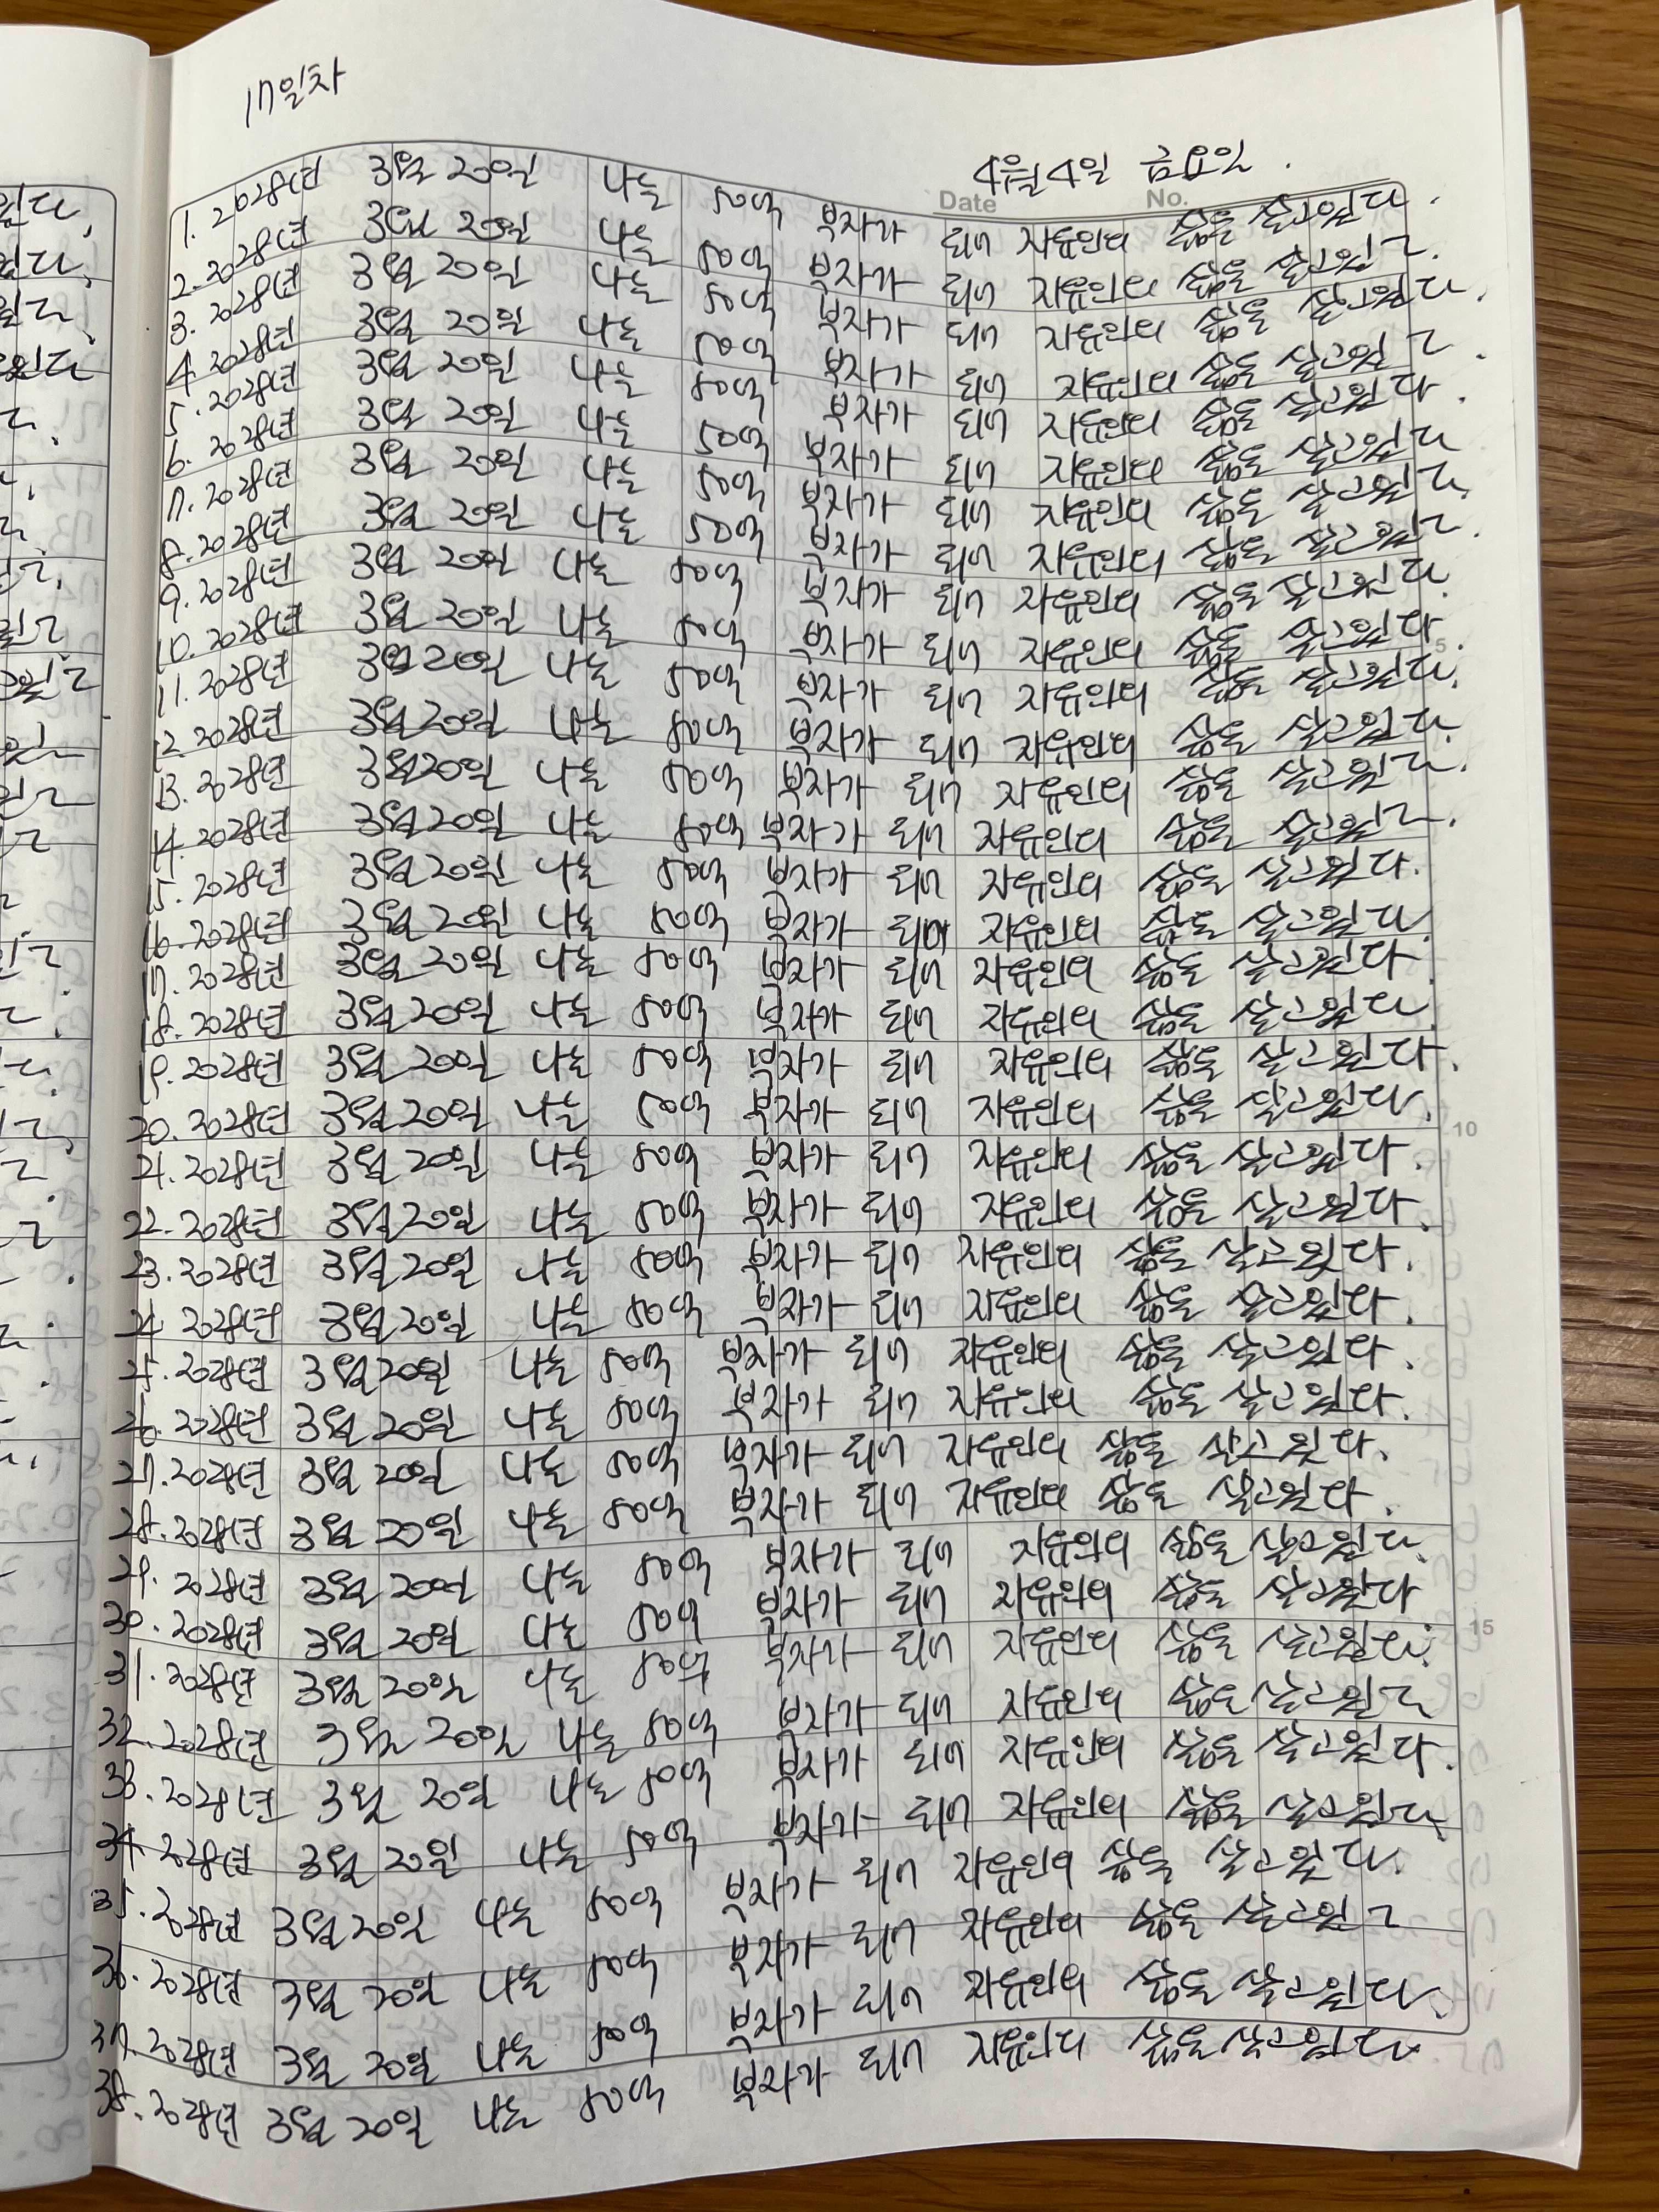 17일차
4월 4일 금요일.
Date No.
1. 2028년 3월 20일 나는 50억 부자가 되어 자유인의 삶을 살고있다.
2. 2028년 3월 20일 나는 50억 부자가 되어 자유인의 삶을 살고있다.
3. 2028년 3월 20일 나는 50억 부자가 되어 자유인의 삶을 살고있다.
4. 2028년 3월 20일 나는 50억 부자가 되어 자유인의 삶을 살고있다.
5. 2028년 3월 20일 나는 50억 부자가 되어 자유인의 삶을 살고있다.
6. 2028년 3월 20일 나는 50억 부자가 되어 자유인의 삶을 살고있다
7. 2028년 3월 20일 나는 50억 부자가 되어 자유인의 삶을 살고있다.
8. 2028년 3월 20일 나는 50억 부자가 되어 자유인의 삶을 살고있다.
9. 2028년 3월 20일 나는 50억 부자가 되어 자유인의 삶을 살고있다.
10. 2028년 3월 20일 나는 50억 부자가 되어 자유인의 삶을 살고있다.
5
11. 2028년 3월 20일 나는 50억 부자가 되어 자유인의 삶을 살고있다.
12. 2028년 3월 20일 나는 50억 부자가 되어 자유인의 삶을 살고있다.
13. 2028년 3월 20일 나는 50억 부자가 되어 자유인의 삶을 살고있다.
14. 2028년 3월 20일 나는 50억 부자가 되어 자유인의 삶을 살고있다.
15. 2028년 3월 20일 나는 50억 부자가 되어 자유인의 삶을 살고있다.
16. 2028년 3월 20일 나는 50억 부자가 되어 자유인의 삶을 살고있다.
17. 2028년 3월 20일 나는 50억 부자가 되어 자유인의 삶을 살고있다.
18. 2028년 3월 20일 나는 50억 부자가 되어 자유인의 삶을 살고있다.
19. 2028년 3월 20일 나는 50억 부자가 되어 자유인의 삶을 살고있다.
20. 2028년 3월 20일 나는 50억 부자가 되어 자유인의 삶을 살고있다.
10
21. 2028년 3월 20일 나는 50억 부자가 되어 자유인의 삶을 살고있다.
22. 2028년 3월 20일 나는 50억 부자가 되어 자유인의 삶을 살고있다.
23. 2028년 3월 20일 나는 50억 부자가 되어 자유인의 삶을 살고있다.
24. 2028년 3월 20일 나는 50억 부자가 되어 자유인의 삶을 살고있다.
25. 2028년 3월 20일 나는 50억 부자가 되어 자유인의 삶을 살고있다.
26. 2028년 3월 20일 나는 50억 부자가 되어 자유인의 삶을 살고있다.
27. 2028년 3월 20일 나는 50억 부자가 되어 자유인의 삶을 살고있다.
28. 2028년 3월 20일 나는 50억 부자가 되어 자유인의 삶을 살고있다.
29. 2028년 3월 20일 나는 50억 부자가 되어 자유인의 삶을 살고있다.
30. 2028년 3월 20일 나는 50억 부자가 되어 자유인의 삶을 살고있다
15
31. 2028년 3월 20일 나는 50억 부자가 되어 자유인의 삶을 살고있다.
32. 2028년 3월 20일 나는 50억 부자가 되어 자유인의 삶을 살고있다
33. 2028년 3월 20일 나는 50억 부자가 되어 자유인의 삶을 살고있다.
34. 2028년 3월 20일 나는 50억 부자가 되어 자유인의 삶을 살고있다.
35. 2028년 3월 20일 나는 50억 부자가 되어 자유인의 삶을 살고있다.
36. 2028년 3월 20일 나는 50억 부자가 되어 자유인의 삶을 살고있다
37. 2028년 3월 20일 나는 50억 부자가 되어 자유인의 삶을 살고있다.
38. 2028년 3월 20일 나는 50억 부자가 되어 자유인의 삶을 살고있다.